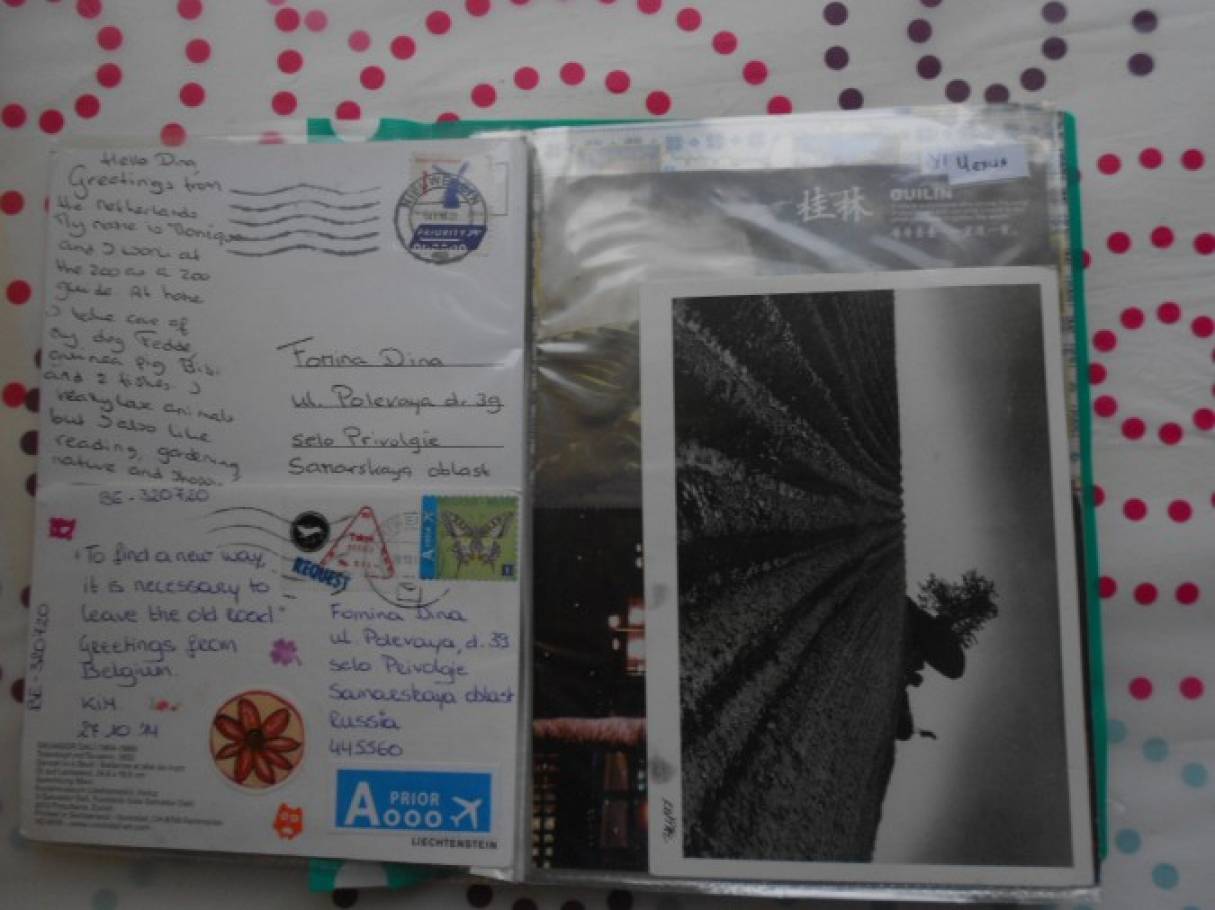 Hello Dina
Greetings from
the netherlands
My name is
and I work at
the zoo as a zoo
guide. At home
I take care of
my dog Fedde
guinea pig Bibi
and 2 fishes. I
really love animals
but I also like
reading, gardening
nature and
PRIORITY
Fomina Dina
ul. Polevaya d. 39
selo Privolgie
Samarskaya oblast
BE-320720
"To find a new way,
it is necessary to
leave the old road"
Greetings from
Belgium.
KIM
27.10.11
BE-320720
REQUEST
Fomina Dina
ul. Polevaya, d. 39
selo Privolgie
Samarskaya oblast
Russia
445560
A PRIOR
LIECHTENSTEIN
桂林 GUILIN
Чехия